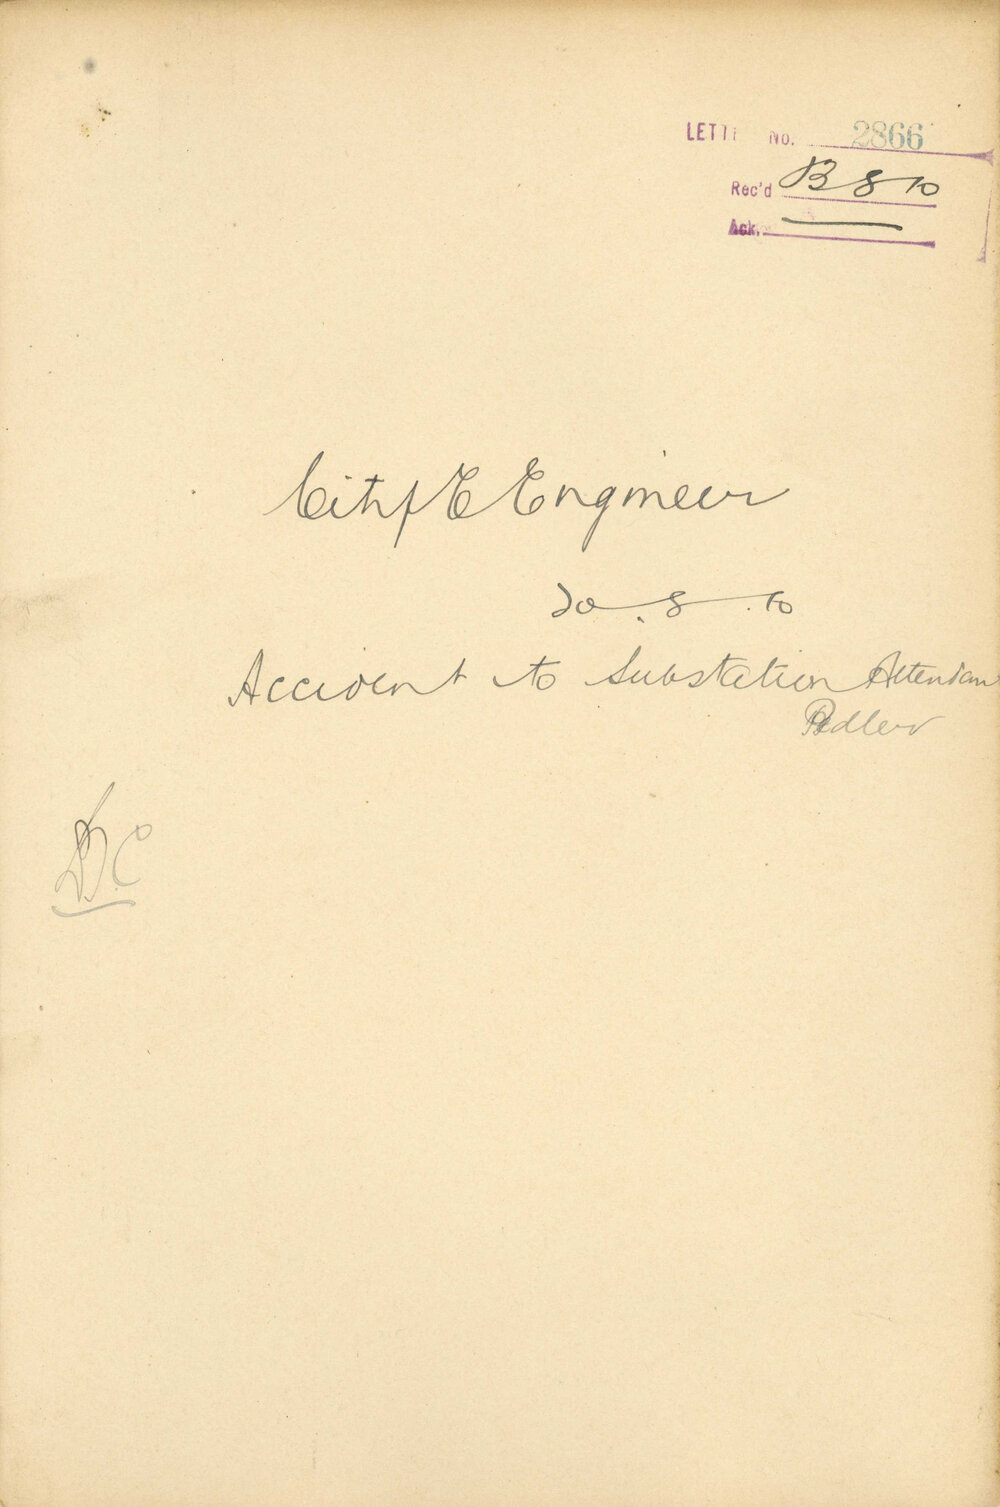 LETT No. 2866
Rec'd 8 10
Ack.
City E Engineer
20.8.10
Accident to Substation Attendan
Pedler